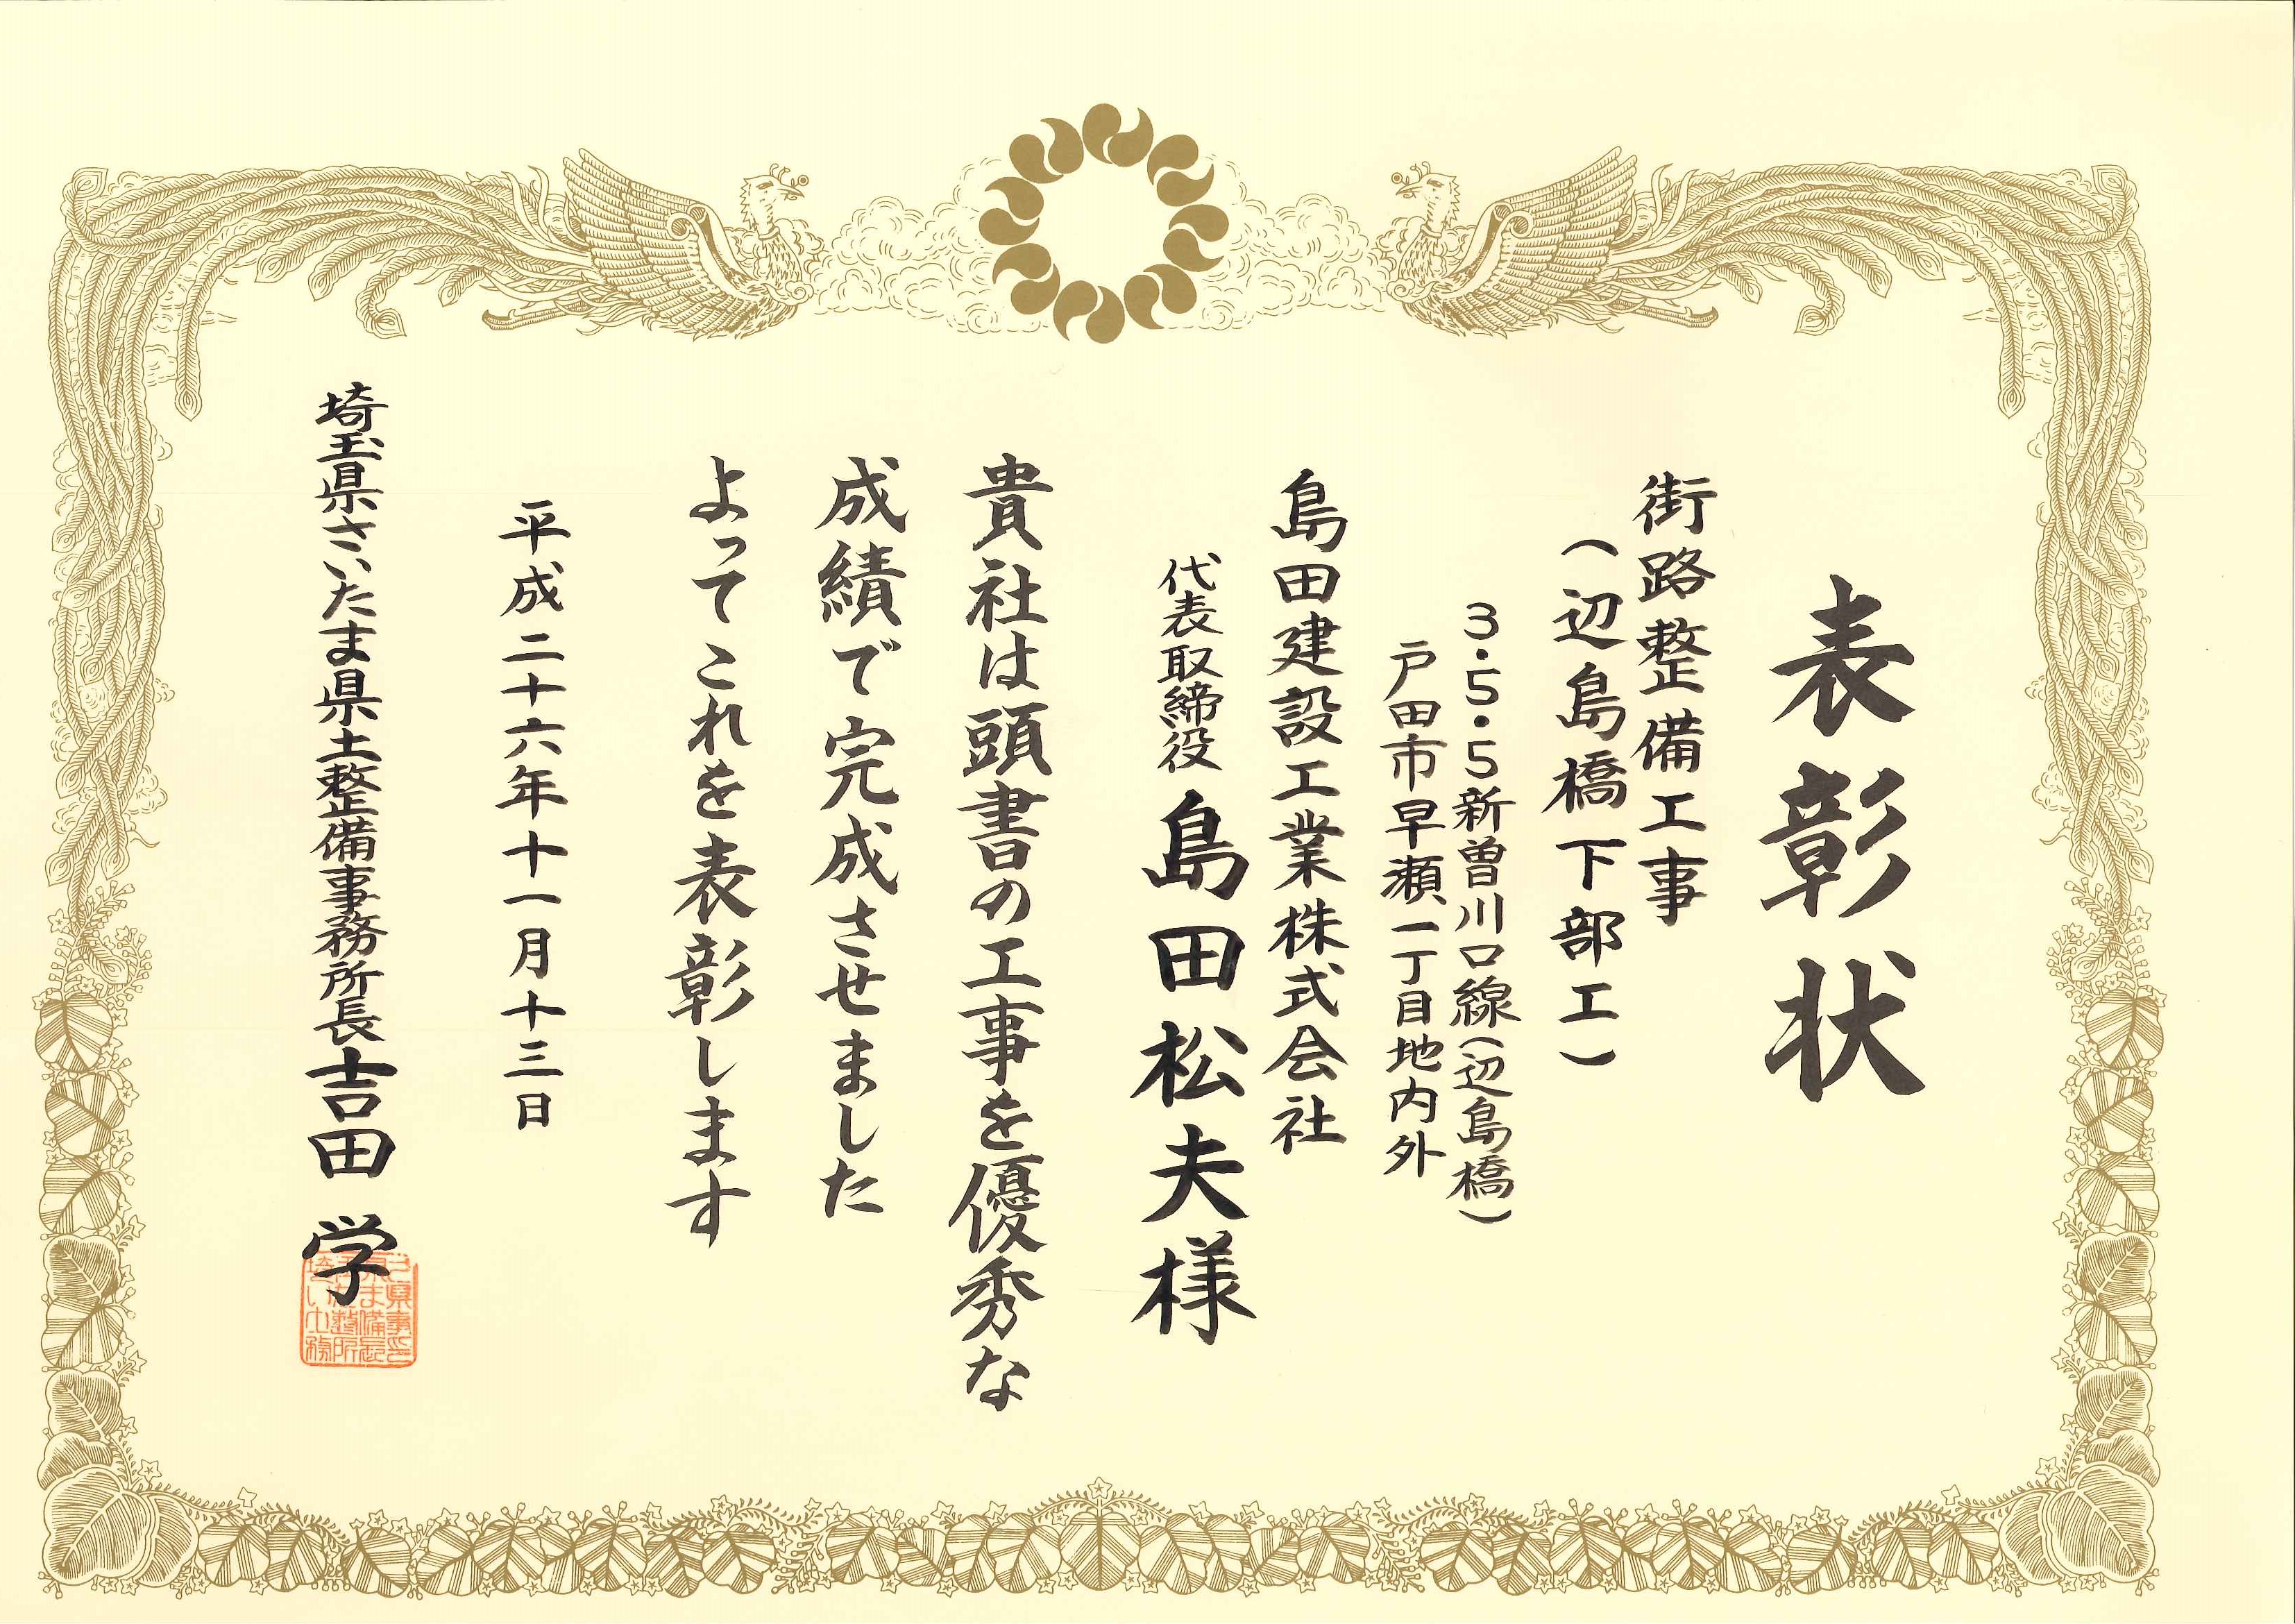 表彰状
街路整備工事
(辺島橋下部工)
3・5・5新曽川口線(辺島橋)
戸田市早瀬一丁目地内外
島田建設工業株式会社
代表取締役 島田松夫様
貴社は頭書の工事を優秀な
成績で完成させました
よってこれを表彰します
平成二十六年十一月十三日
埼玉県さいたま県土整備事務所長 吉田 学